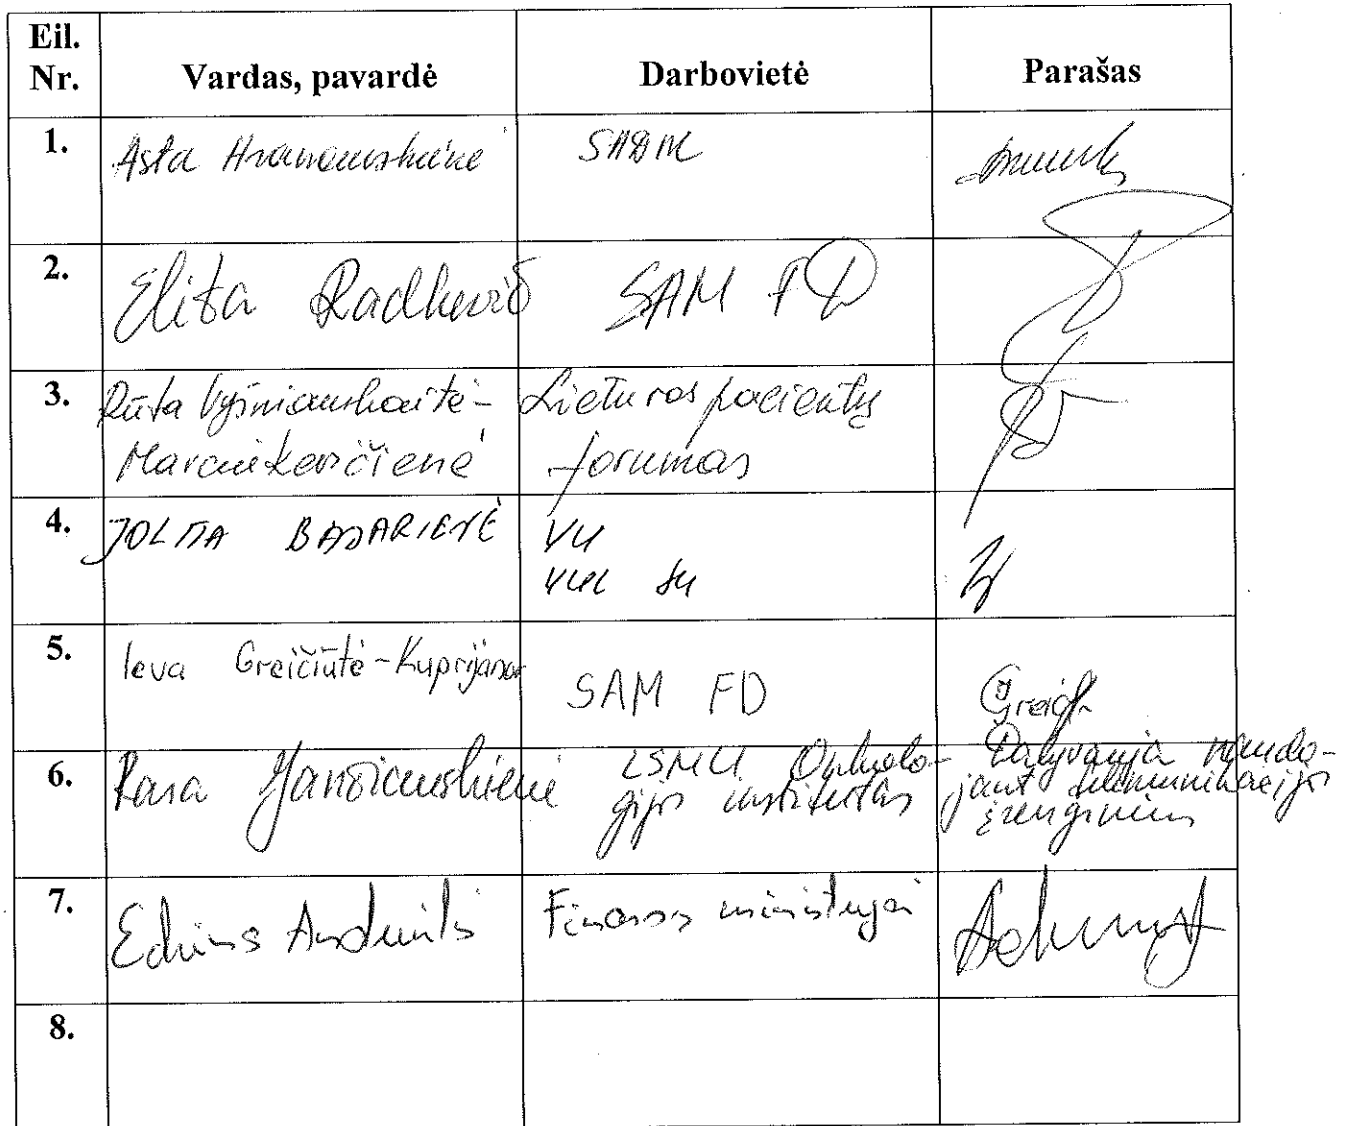 Eil.
Nr.
Vardas, pavardė
Darbovietė
Parašas
1.
Asta
SADM
2.
Elita Radkevič
SAM FD
3.
Rūta Vyšniauskaitė-
Marcinkevičienė
Lietuvos pacientų
forumas
4.
JOLITA BADARIENĖ
VU
5.
Ieva Greičiūtė-Kuprijanov
SAM FD
6.
Rasa Jančiauskienė
LSMU Onkolo-
gijos institutas
Dalyvauja naudo-
jant telekomunikacijos
įrenginius
7.
Finansų ministerija
8.